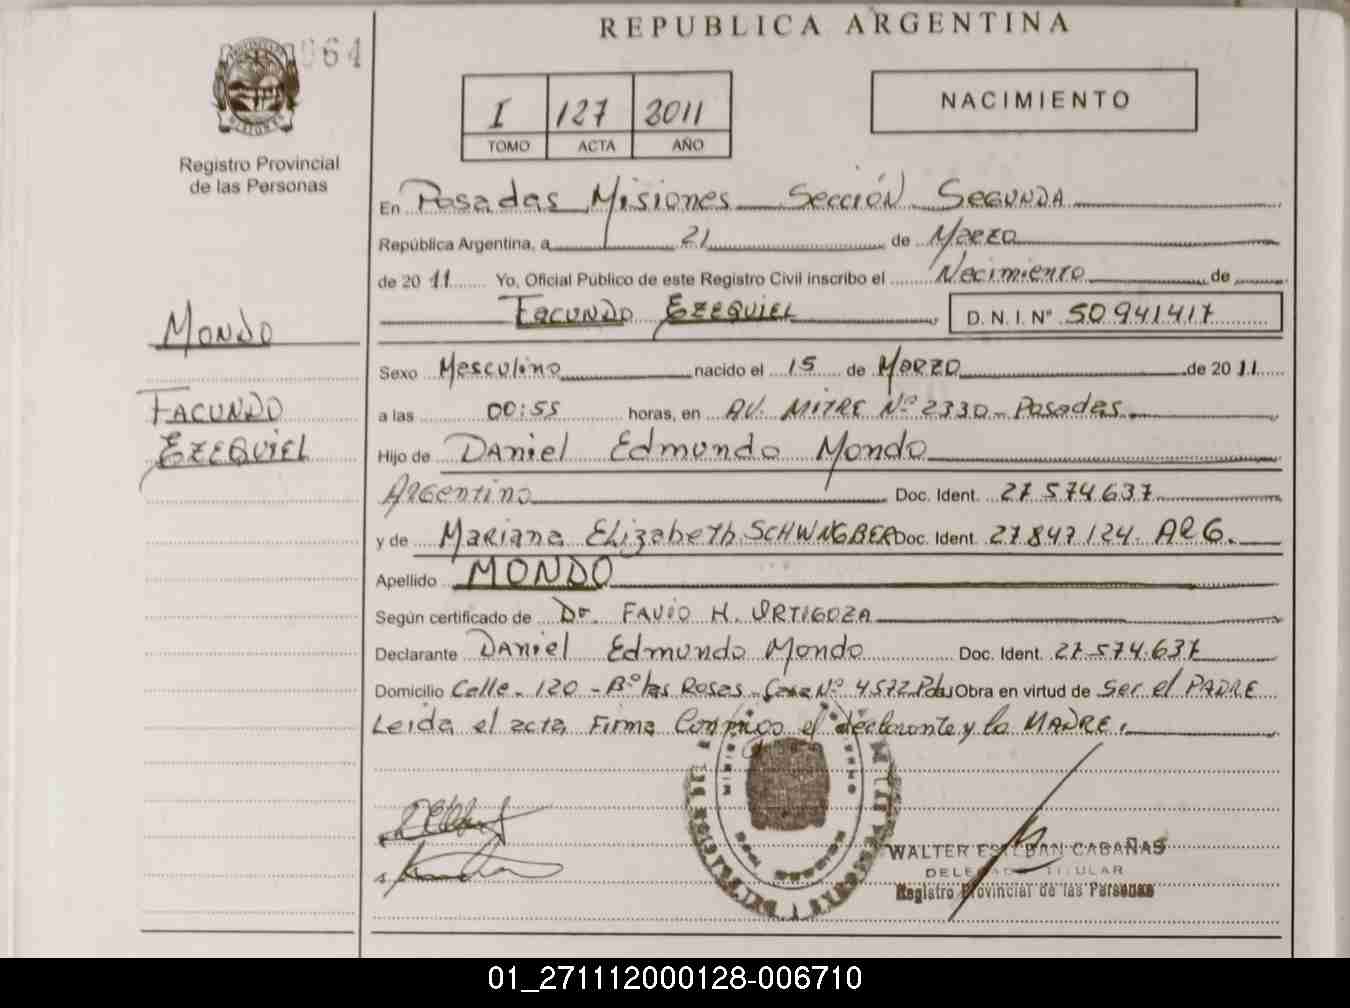 REPUBLICA ARGENTINA
064
I 127 2011
TOMO ACTA AÑO
NACIMIENTO
Registro Provincial
de las Personas
En Posadas Misiones Sección Segunda
República Argentina, a 21 de Marzo
de 2011 Yo, Oficial Público de este Registro Civil inscribo el Nacimiento de
Facundo Ezequiel D. N. I. Nº 50941417
MONDO
FACUNDO
EZEQUIEL
Sexo Masculino nacido el 15 de Marzo de 2011
a las 00:55 horas, en AV. MITRE Nº 2330 - Posadas
Hijo de Daniel Edmundo Mondo
Argentino Doc. Ident. 27.574.637
y de Mariana Elizabeth SCHWNGBER Doc. Ident. 27.847.124. ARG.
Apellido MONDO
Según certificado de Dr. FAVIO H. ORTIGOZA
Declarante Daniel Edmundo Mondo Doc. Ident. 27.574.637
Domicilio Calle. 120 - Bº las Rosas - Casa Nº 4572 Pdas Obra en virtud de Ser el PADRE
Leida el acta, Firma Conmigo el declarante y la MADRE.
WALTER ESTEBAN CABAÑAS
DELEGADO TITULAR
Registro Provincial de las Personas
01_271112000128-006710